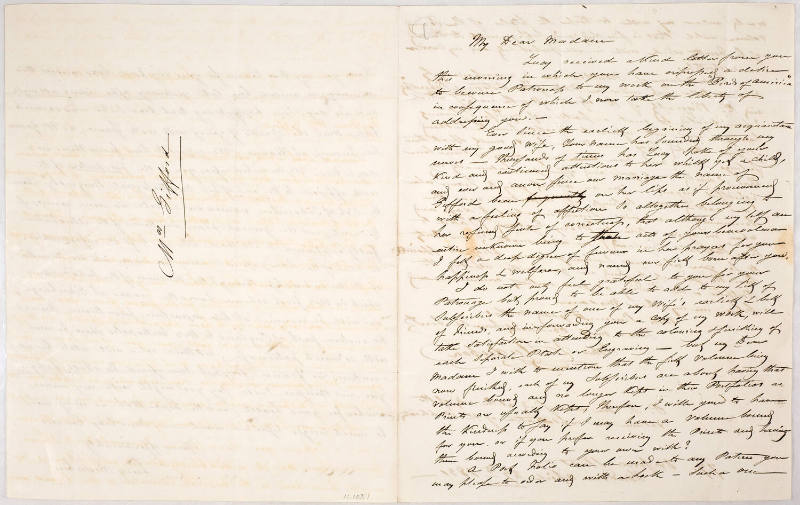 Mrs Gifford
My Dear Madam
Lucy received a kind letter from you
this morning in which you have expressed a desire
to become Patroness to my work on the "Birds of America"
in consequence of which I now take the liberty of
addressing you. —
Ever since the earliest beginning of my acquaintance
with my good wife, Your name has sounded through my
— thousands of times has Lucy spoke of your
kind and attentions to her whilst yet a child,
and ever and since our marriage the name of
Gifford been on her lips as if pronounced
with a feeling of affection so altogether belonging to
her
entire unknown being to acts of your benevolence
I felt a deep degree of fervour in the prayers for your
happiness & welfare, and named our first born after you.
I do not only feel grateful to you for your
Patronage but proud to be able to add to my list of
Subscribers the name of one of my Wife's earliest & best
of friends, and in forwarding you a copy of my work, will
take satisfaction in attending to the colouring & finishing of
each separate Plate or Engraving — but my Dear
Madam I wish to mention that the first volume being
now finished, each of my Subscribers are about having that
volume bound and no longer kept in the Portfolios as
Prints are usually kept; therefore, I wish you to have
the kindness to say if I may have a volume bound
for you or if you prefer receiving the Prints and having
them bound according to your own wish?
A Port Folio can be made to any Pattern you
may please to order and with a lock — Such a one